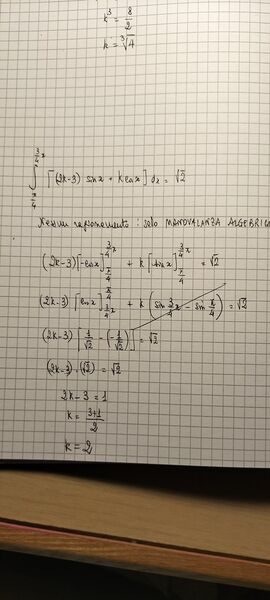 k³ = 8/2
k = ∛4
∫_{π/4}^{3/4 π} [(2k-3) sin x + k cos x] dx = √2
Nessun ragionamento : solo MANOVALANZA ALGEBRICA
(2k-3) [-cos x]_{π/4}^{3/4 π} + k [sin x]_{π/4}^{3/4 π} = √2
(2k-3) [cos x]_{3/4 π}^{π/4} + k (sin 3/4 π - sin π/4) = √2
(2k-3) [1/√2 - (-1/√2)] = √2
(2k-3) · (√2) = √2
2k-3 = 1
k = 3+1/2
k = 2